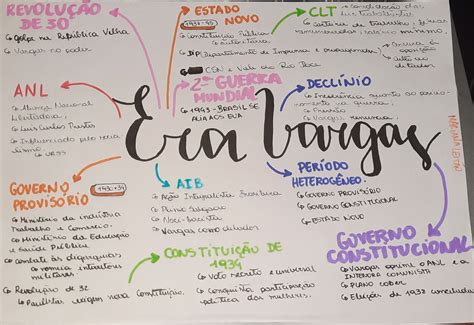 REVOLUÇÃO
DE 30
Golpe na República Velha
Vargas no poder
ESTADO
NOVO
1937-45
Constituição Polaca
autoritária
DIP (Departamento de Imprensa e Propaganda)
CSN e Vale do Rio Doce
CLT
Consolidação das
leis trabalhistas
Carteira de trabalho, férias
remuneradas, salário mínimo
2ª GUERRA
MUNDIAL
1943 - BRASIL SE
ALIA AOS EUA
DECLÍNIO
Incoerência quanto ao posicio-
namento na guerra
Pressão
Vargas renuncia
ANL
Aliança Nacional
Libertadora
Luís Carlos Prestes
Influenciado pelo socia-
lismo
URSS
Era Vargas
GOVERNO
PROVISÓRIO
1930-34
Ministério da indústria
Trabalho e Comércio
Ministério da Educação
e Saúde Pública
Combate às oligarquias
nomeia interventores
militares
Revolução de 32
Paulistas exigem nova Constituição
AIB
Ação Integralista Brasileira
Plínio Salgado
Nazi-fascista
Vargas como ditador
PERÍODO
HETEROGÊNEO:
GOVERNO PROVISÓRIO
GOVERNO CONSTITUCIONAL
ESTADO NOVO
CONSTITUIÇÃO DE
1934
Voto secreto e universal
Conquista participação
política das mulheres
GOVERNO
CONSTITUCIONAL
Vargas oprime o ANL e a
INTENTONA COMUNISTA
PLANO COHEN
Eleições de 1938 canceladas